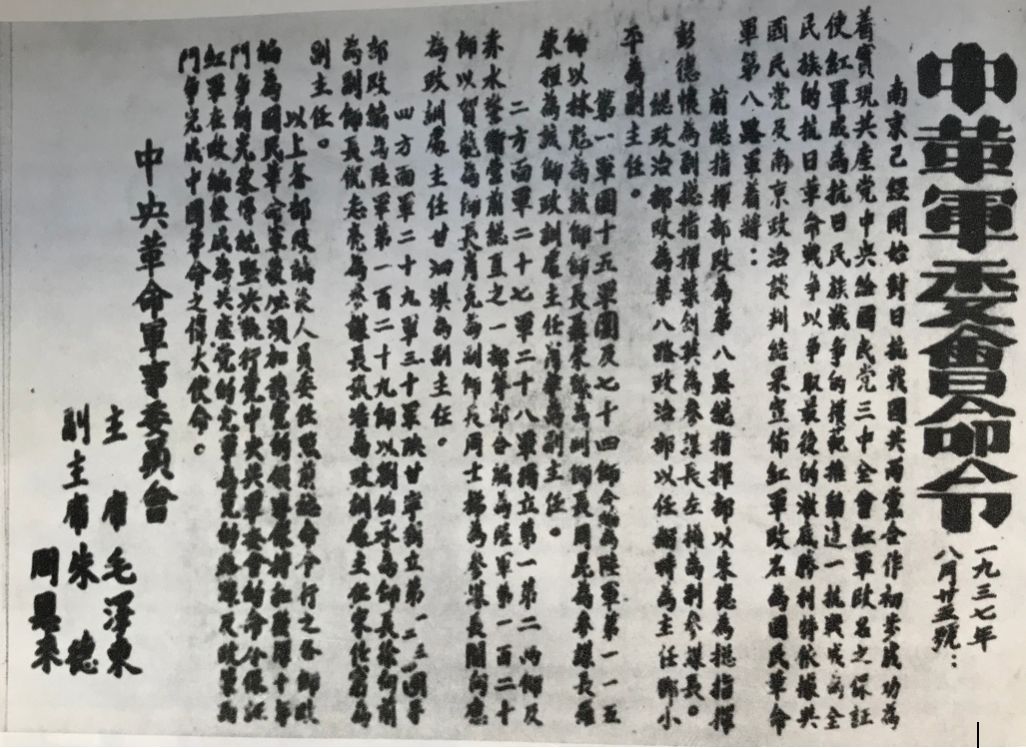 中華軍委會員令命令
一九三七年
八月廿五號：
南京已經開始對日抗戰國共兩黨合作初步成功為
着實現共產党中央給國民党三中全會紅軍改名之保証
使紅軍成為抗日民族戰爭的模範推動這一抗戰成為全
民族的抗日革命戰爭以爭取最後的澈底勝利特依據共
國民党及南京政治談判結果宣佈紅軍改名為國民革命
軍第八路軍着將：
前總指揮部改為第八路總指揮部以朱德為總指揮
彭德懷為副總指揮葉劍英為參謀長左權為副參謀長。
總政治部改為第八路政治部以任弼時為主任鄧小
平為副主任。
第一軍團十五軍團及七十四師合編為陸軍第一一五
師以林彪為該師師長聶榮臻為副師長周昆為參謀長羅
榮桓為該師政訓處主任蕭華為副主任。
二方面軍二十七軍二十八軍獨立第一第二兩師及
赤水警衛營前總直之一部等部合編為陸軍第一百二十
師以賀龍為師長肖克為副師長周士梯為參謀長關向應
為政訓處主任甘泗淇為副主任。
四方面軍二十九軍三十軍陝甘寧獨立第一二三四團等
部改編為陸軍第一百二十九師以劉伯承為師長徐向前
為副師長倪志亮為參謀長張浩為政訓處主任宋任窮為
副主任。
以上各部改編後人員委任照前總命令行之各師改
編為國民革命軍後必須加強党的領導保持紅軍十年
鬥爭的光榮傳統堅決執行党中央與軍委會的命令保証
紅軍在改編後成為共產党的党軍為党的路線及政策而
鬥爭完成中國革命之偉大使命。
中央革命軍事委員會
主席毛澤東
副主席朱德
周恩來